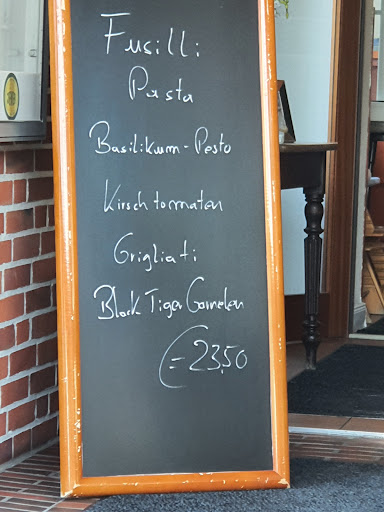 Fusilli
Pasta
Basilikum-Pesto
Kirschtomaten
Grigliati
Black Tiger Garnelen
€ 23,50